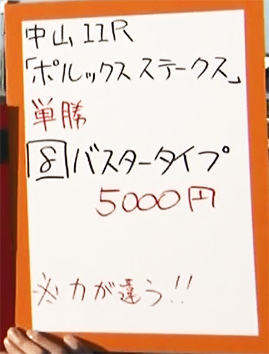 中山11R
「ポルックスステークス」
単勝
8バスタータイプ
5000円
※力が違う!!